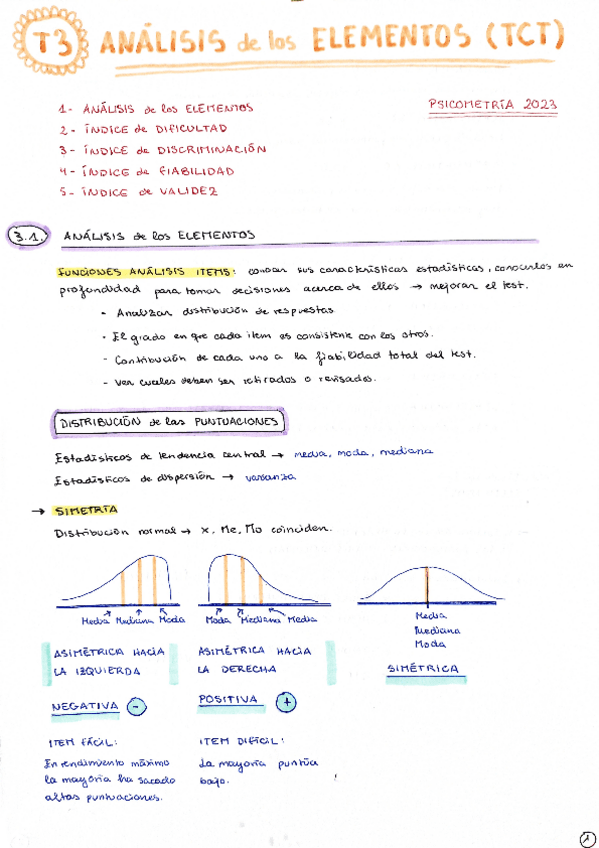 T3 ANÁLISIS de los ELEMENTOS (TCT)
1- ANÁLISIS de los ELEMENTOS
PSICOMETRÍA 2023
2- ÍNDICE de DIFICULTAD
3- ÍNDICE de DISCRIMINACIÓN
4- ÍNDICE de FIABILIDAD
5- ÍNDICE de VALIDEZ
3.1. ANÁLISIS de los ELEMENTOS
FUNCIONES ANÁLISIS ITEMS: conocer sus características estadísticas, conocerlos en
profundidad para tomar decisiones acerca de ellos → mejorar el test.
- Analizar distribución de respuestas
- El grado en que cada item es consistente con los otros.
- Contribución de cada uno a la fiabilidad total del test.
- Ver cuales deben ser retirados o revisados.
DISTRIBUCIÓN de las PUNTUACIONES
Estadísticos de tendencia central → media, moda, mediana
Estadísticos de dispersión → varianza
→ SIMETRÍA
Distribución normal → x, Me, Mo coinciden.
Media Mediana Moda
Moda Mediana Media
Media
Mediana
Moda
ASIMÉTRICA HACIA
LA IZQUIERDA
ASIMÉTRICA HACIA
LA DERECHA
SIMÉTRICA
NEGATIVA -
POSITIVA +
ITEM FÁCIL:
En rendimiento máximo
la mayoría ha sacado
altas puntuaciones.
ITEM DIFÍCIL:
La mayoría puntúa
bajo.
1